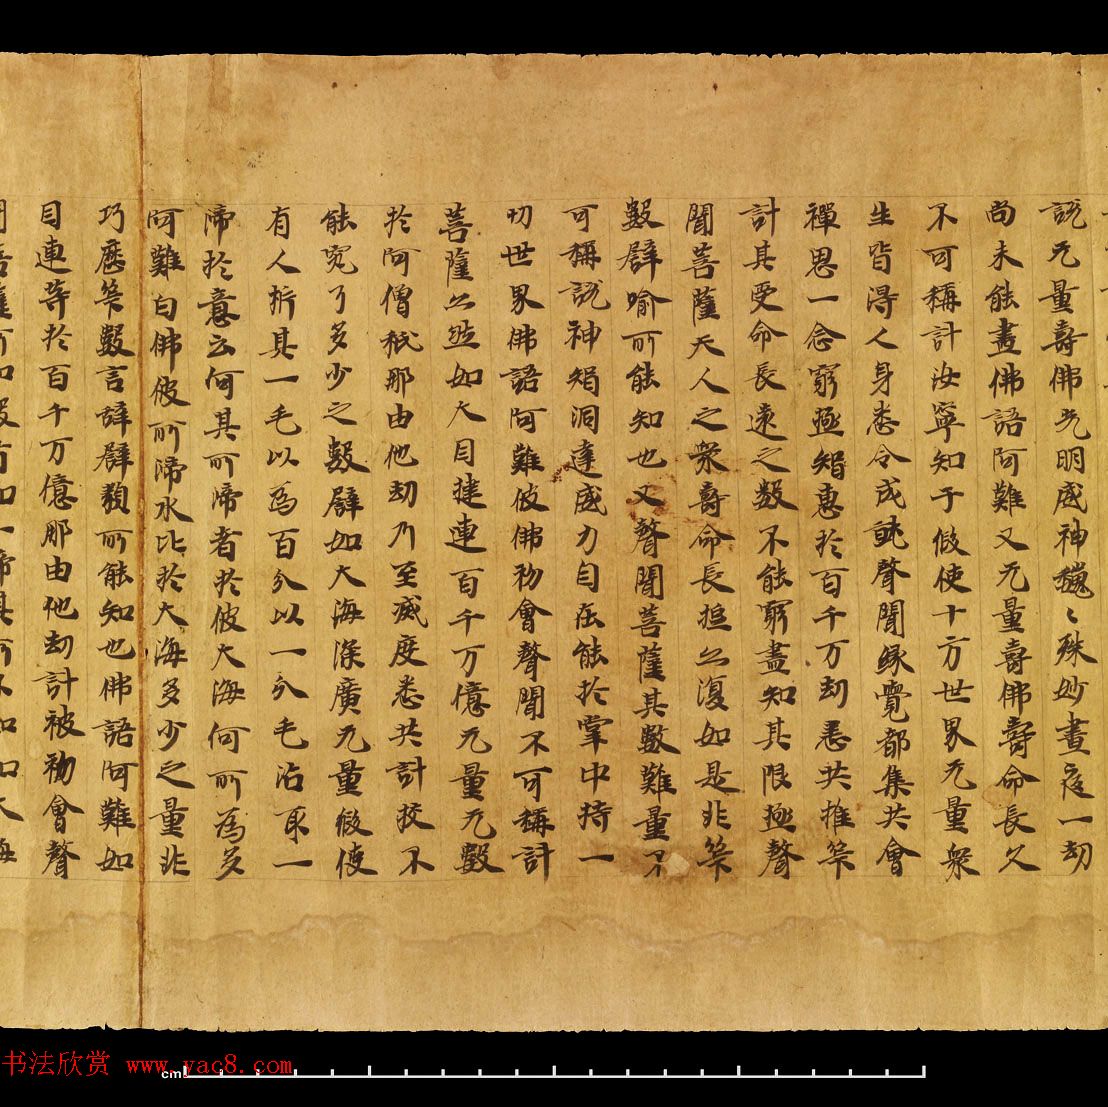 説无量壽佛光明威神巍〻殊妙晝夜一劫
尚未能盡佛語阿難又无量壽佛壽命長久
不可稱計汝寧知乎假使十方世界无量衆
生皆得人身悉令成就聲聞縁覺都集共會
禪思一念窮極智惠於百千万劫悉共推筭
計其受命長遠之數不能窮盡知其限極聲
聞菩薩天人之衆壽命長短亦復如是非筭
數譬喻所能知也又聲聞菩薩其數難量不
可稱説神智洞達威力自在能於掌中持一
切世界佛語阿難彼佛初會聲聞不可稱計
菩薩亦然如大目揵連百千万億无量无數
於阿僧祇那由他劫乃至滅度悉共計挍不
能究了多少之數譬如大海深廣无量假使
有人析其一毛以為百分以一分毛沾取一
渧於意云何其所渧者於彼大海何所為多
阿難白佛彼所渧水比於大海多少之量非
巧歷筭數言辭譬類所能知也佛語阿難如
目連等於百千万億那由他劫計彼初會聲
聞菩薩所知數者如一渧其所不知如大海
书法欣赏 www.yac8.com
cm